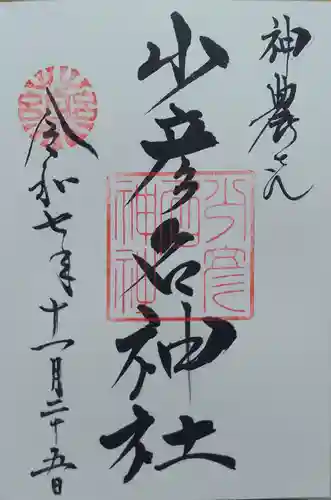 神農さん
少彦名神社
令和七年十一月二十五日
少彦名神社